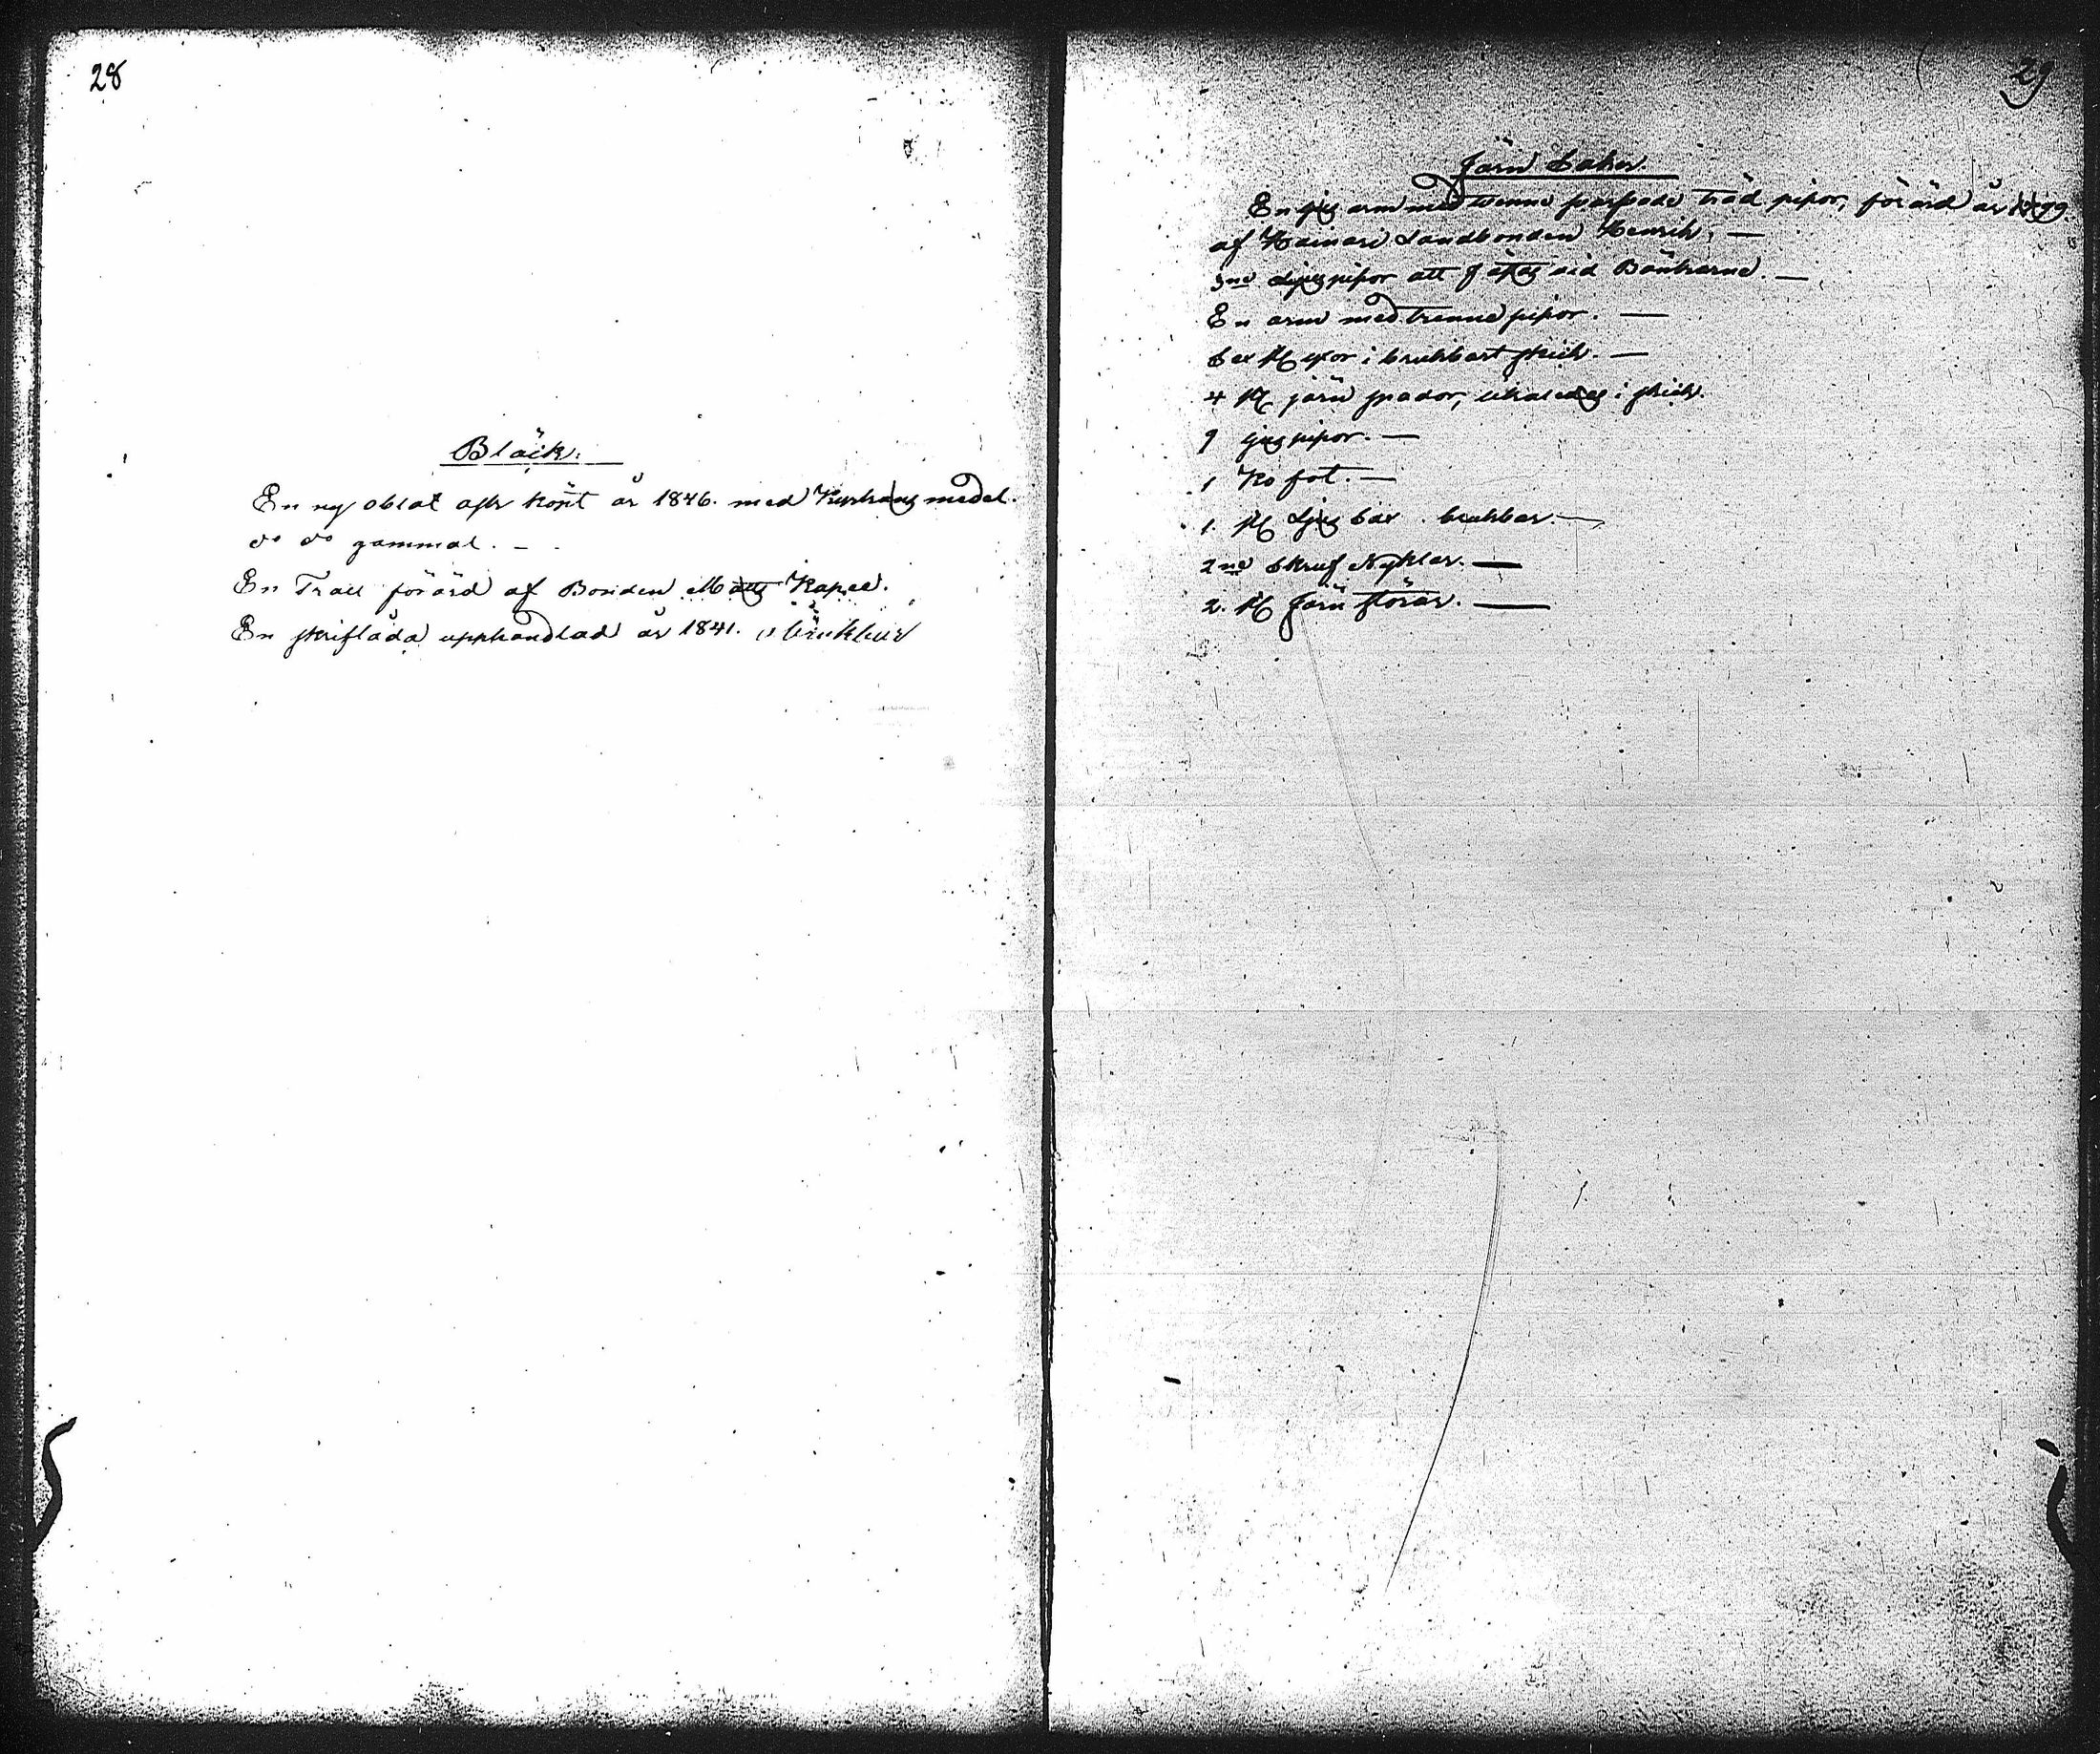 28
Bläck.
En ny oblat ask köpt år 1846. med Kyrkans medel.
do do gammal. —
En Tratt förärd af Bonden Matts Kapee.
En skriflåda upphandlad år 1841. obrukbar
29
Järn Saker.
En ljus arm med trenne träd pipor, förärd år
af Kainari Landbonden Henrik. —
3ne Ljus pipor att fästas vid Bänkarne. —
En arm med trenne pipor. —
Sex st yxor i brukbart skick. —
4 st järn spador, likaledes i skick.
9 ljus pipor. —
1 Ko fot. —
1. st Ljus Sax. brukbar. —
2ne Skruf Nyklar. —
2. st Järn störar. —